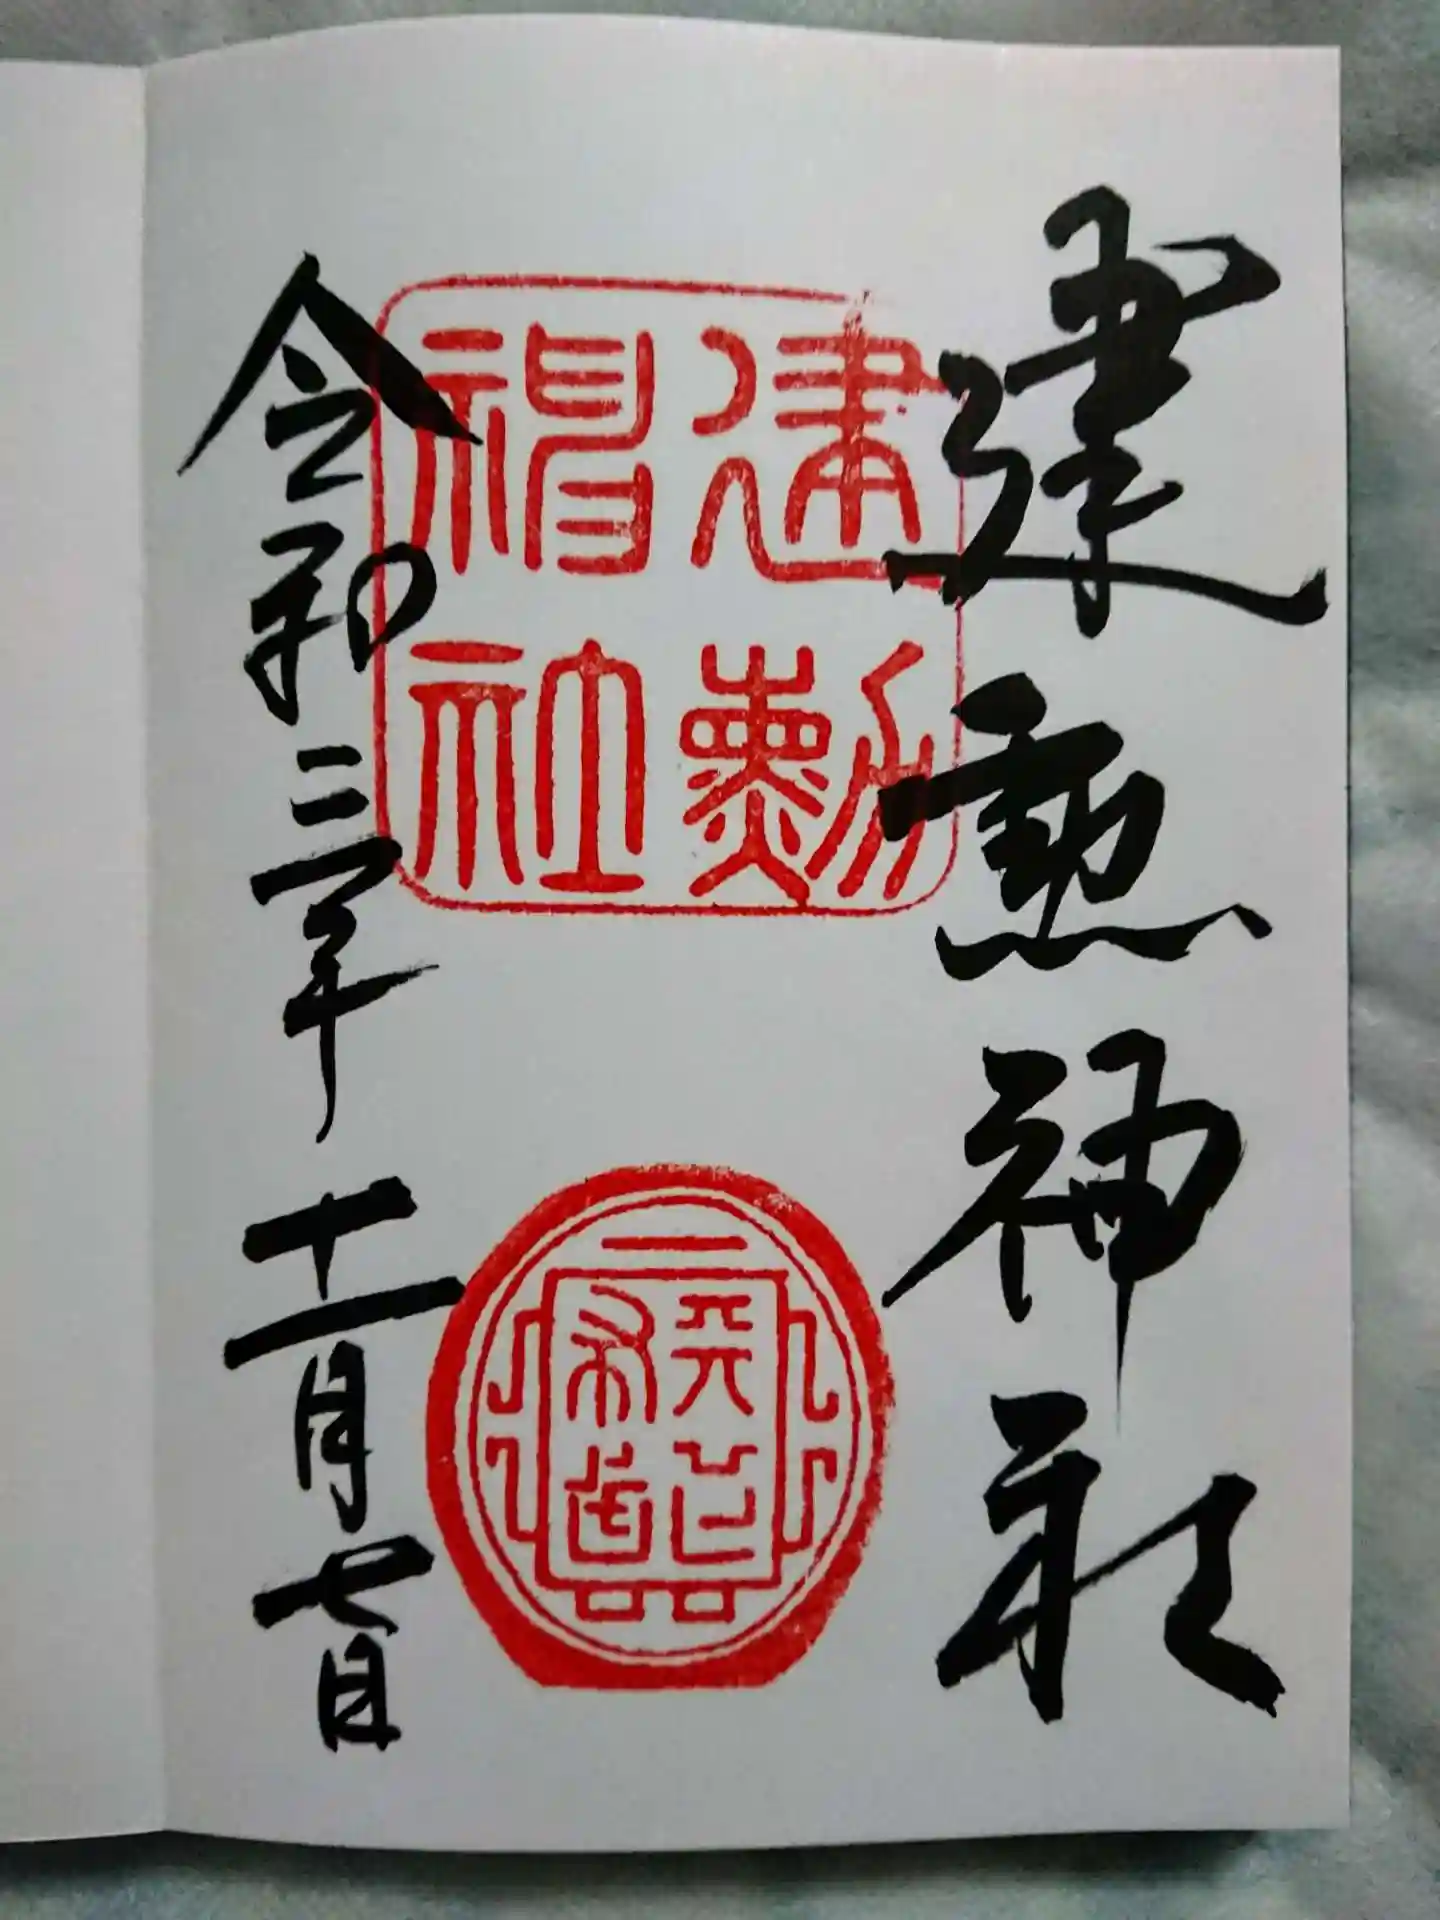 建勲神社
建勲
神社
天下
布武
令和三年十一月七日